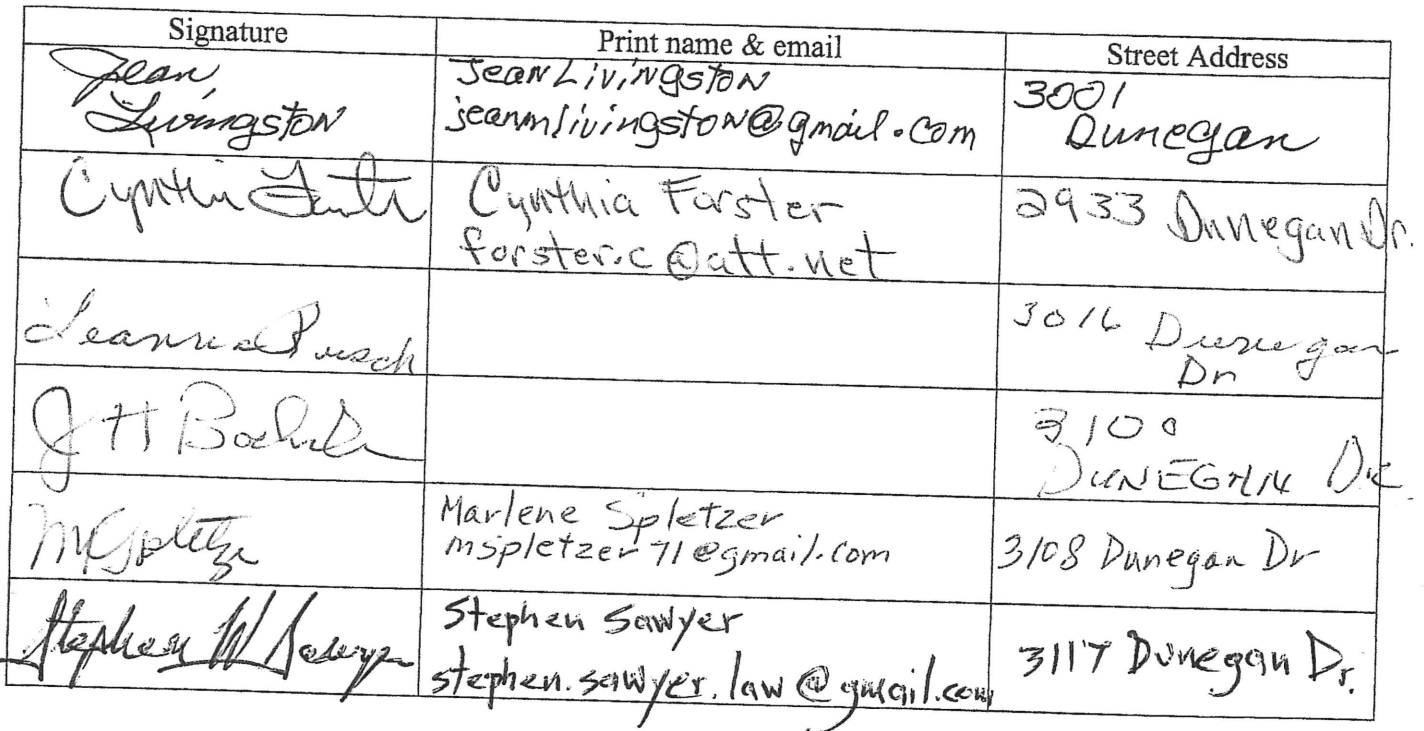 Signature
Print name & email
Street Address
Jean
Livingston
Jean Livingston
jeanmlivingston@gmail.com
3001
Dunegan
Cynthia
Cynthia Forster
forster.c@att.net
2933 Dunegan Dr.
Leanna Busch
3016 Dunegan
Dr
J H
3100
DUNEGAN DR.
M G Spletzer
Marlene Spletzer
mspletzer71@gmail.com
3108 Dunegan Dr
Stephen W Sawyer
Stephen Sawyer
stephen.sawyer.law@gmail.com
3117 Dunegan Dr.